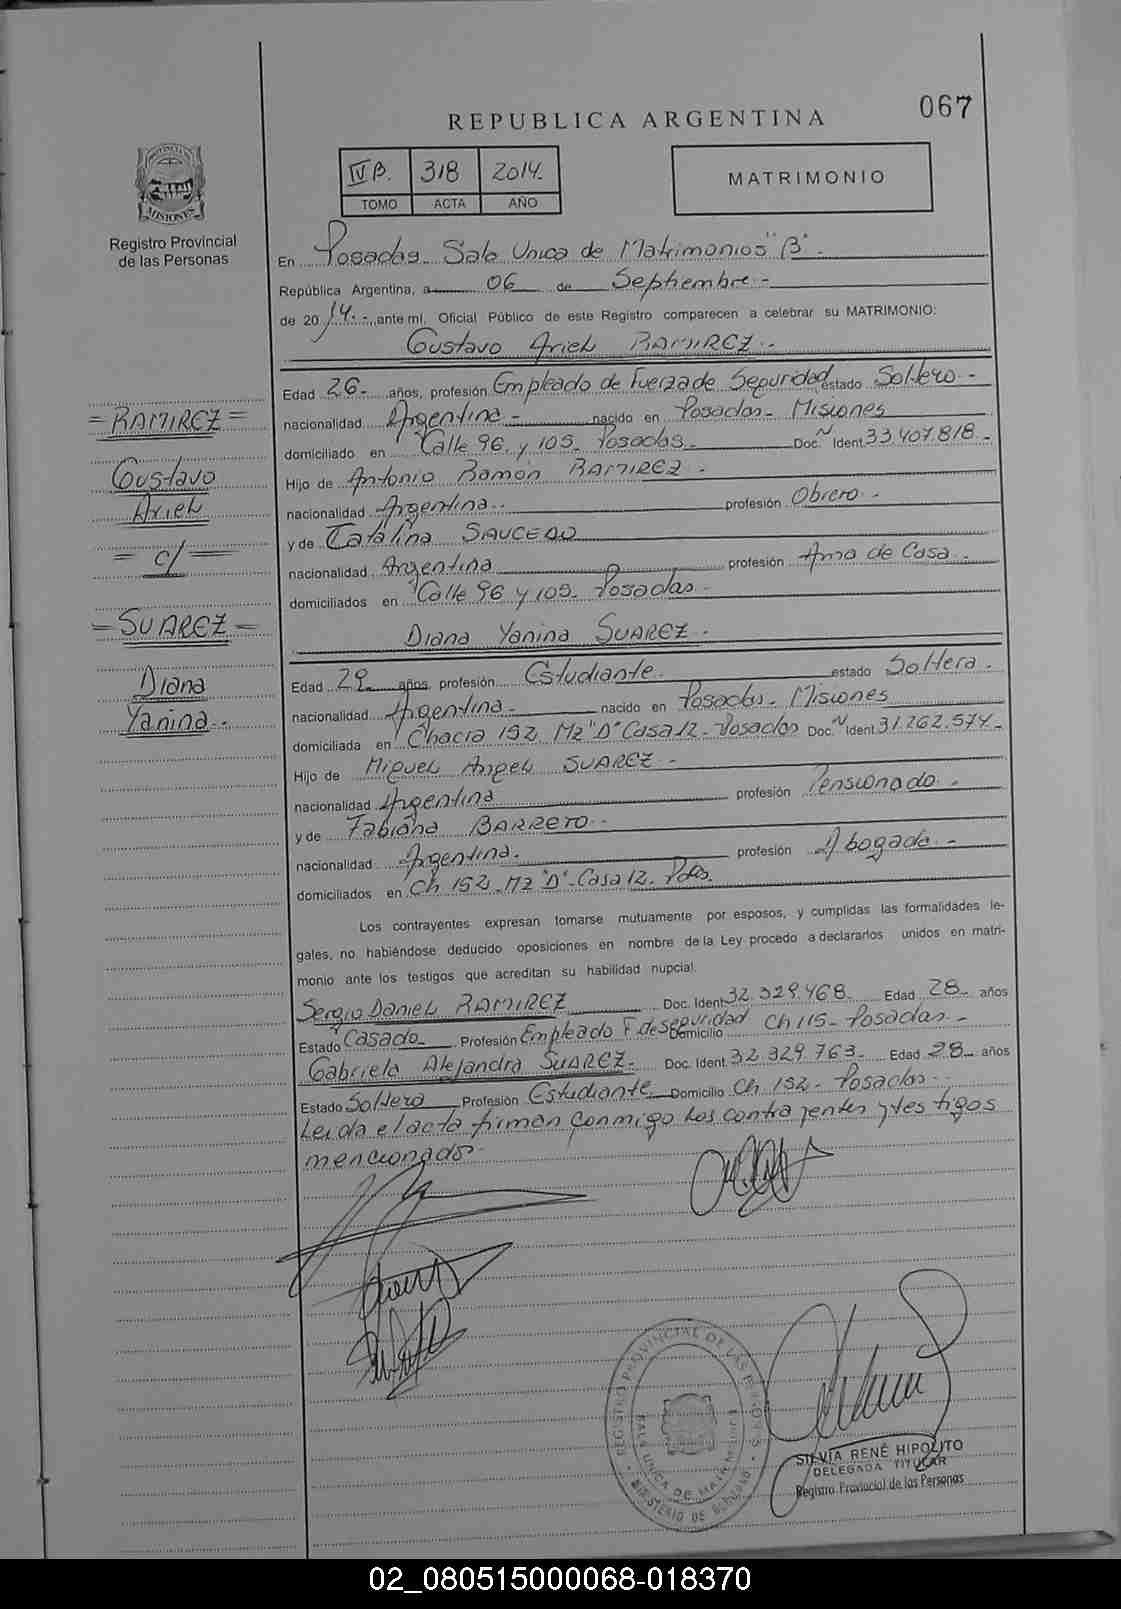 067
REPUBLICA ARGENTINA
IV B. 318 2014.
TOMO ACTA AÑO
MATRIMONIO
PROVINCIA DE MISIONES
Registro Provincial
de las Personas
En Posadas Sala Unica de Matrimonios "B".
República Argentina, a 06 de Septiembre.-
de 2014.- ante mí, Oficial Público de este Registro comparecen a celebrar su MATRIMONIO:
Gustavo Ariel RAMIREZ.-
Edad 26.- años, profesión Empleado de Fuerza de Seguridad estado Soltero.-
nacionalidad Argentina.- nacido en Posadas- Misiones
domiciliado en Calle 96 y 105. Posadas.- Doc. N Ident. 33.407.818.-
Hijo de Antonio Ramón RAMIREZ.-
nacionalidad Argentina.- profesión Obrero.-
y de Catalina SAUCEDO
nacionalidad Argentina profesión Ama de Casa.-
domiciliados en Calle 96 y 105- Posadas.-
Diana Yanina SUAREZ.-
Edad 29 años, profesión Estudiante.- estado Soltera.-
nacionalidad Argentina.- nacido en Posadas- Misiones
domiciliada en Chacra 152 Mz "D" Casa 12- Posadas Doc. N Ident. 31.262.574.-
Hijo de Miguel Angel SUAREZ.-
nacionalidad Argentina profesión Pensionado.-
y de Fabiana BARRETO.-
nacionalidad Argentina. profesión Abogada.-
domiciliados en Ch 152- Mz "D"- Casa 12. Pdas.
Los contrayentes expresan tomarse mutuamente por esposos, y cumplidas las formalidades le-
gales, no habiéndose deducido oposiciones en nombre de la Ley procedo a declararlos unidos en matri-
monio ante los testigos que acreditan su habilidad nupcial.
Sergio Daniel RAMIREZ Doc. Ident. 32.329.468. Edad 28- años
Estado Casado- Profesión Empleado F. de Seguridad Domicilio Ch 115- Posadas.-
Gabriela Alejandra SUAREZ.- Doc. Ident. 32.329.763.- Edad 28- años
Estado Soltera Profesión Estudiante Domicilio Ch 152- Posadas.-
Leida el acta firman conmigo los contrayentes y testigos
mencionados.-
= RAMIREZ =
Gustavo
Ariel
= c/ =
= SUAREZ =
Diana
Yanina.-
REGISTRO PROVINCIAL DE LAS PERSONAS
SALA UNICA DE MATRIMONIOS
MINISTERIO DE GOBIERNO
SILVIA RENÉ HIPOLITO
DELEGADA TITULAR
Registro Provincial de las Personas
02_080515000068-018370